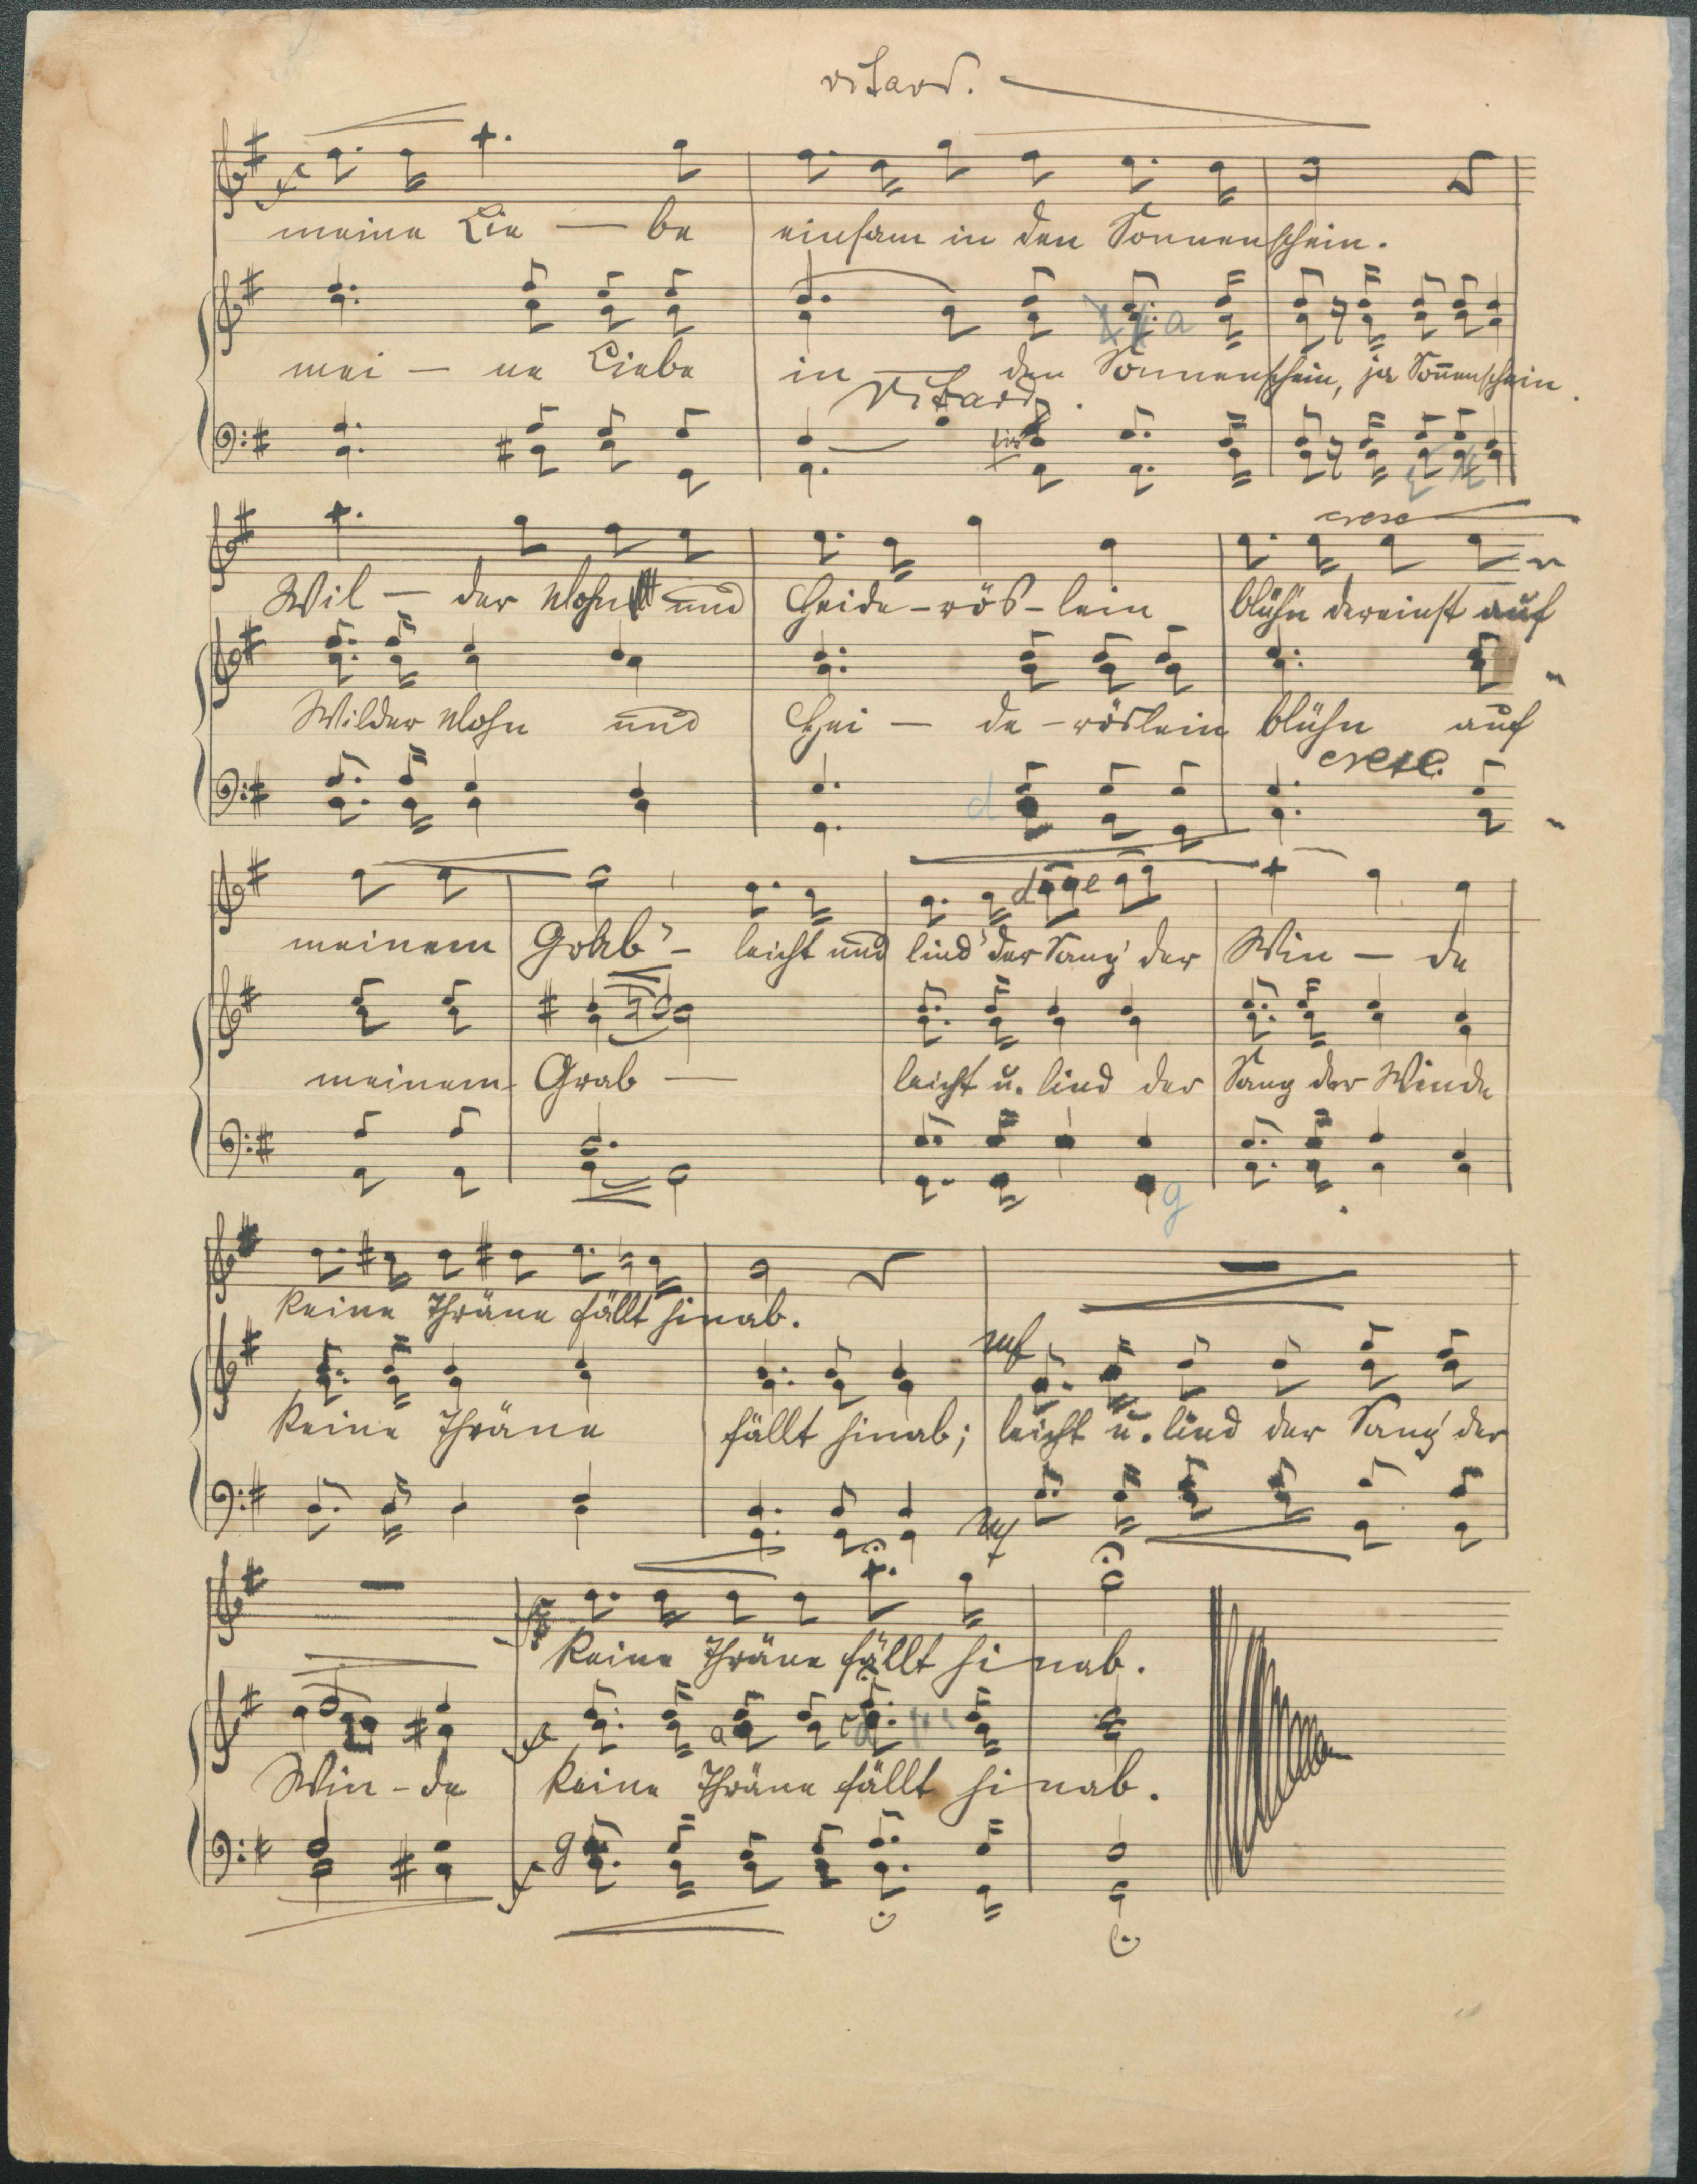 ritard.
meine Lie — be einsam in den Sonnenschein.
a
mei — ne Liebe in — den Sonnenschein, ja Soñenschein.
Ritard.
fis
cresc
Wil — der Mohn und Heide-rös-lein blühn dereinst auf
Wilder Mohn und Hei — de-röslein blühn auf
cresc.
d
d e
meinem Grab - leicht und lind der Sang der Win — de
meinem Grab — leicht u. lind der Sang der Winde
g
keine Thräne fällt hinab.
mf
keine Thräne fällt hinab; leicht u. lind der Sang der
mf
f
keine Thräne fällt hinab.
f a c d
Win-de keine Thräne fällt hinab.
g
f